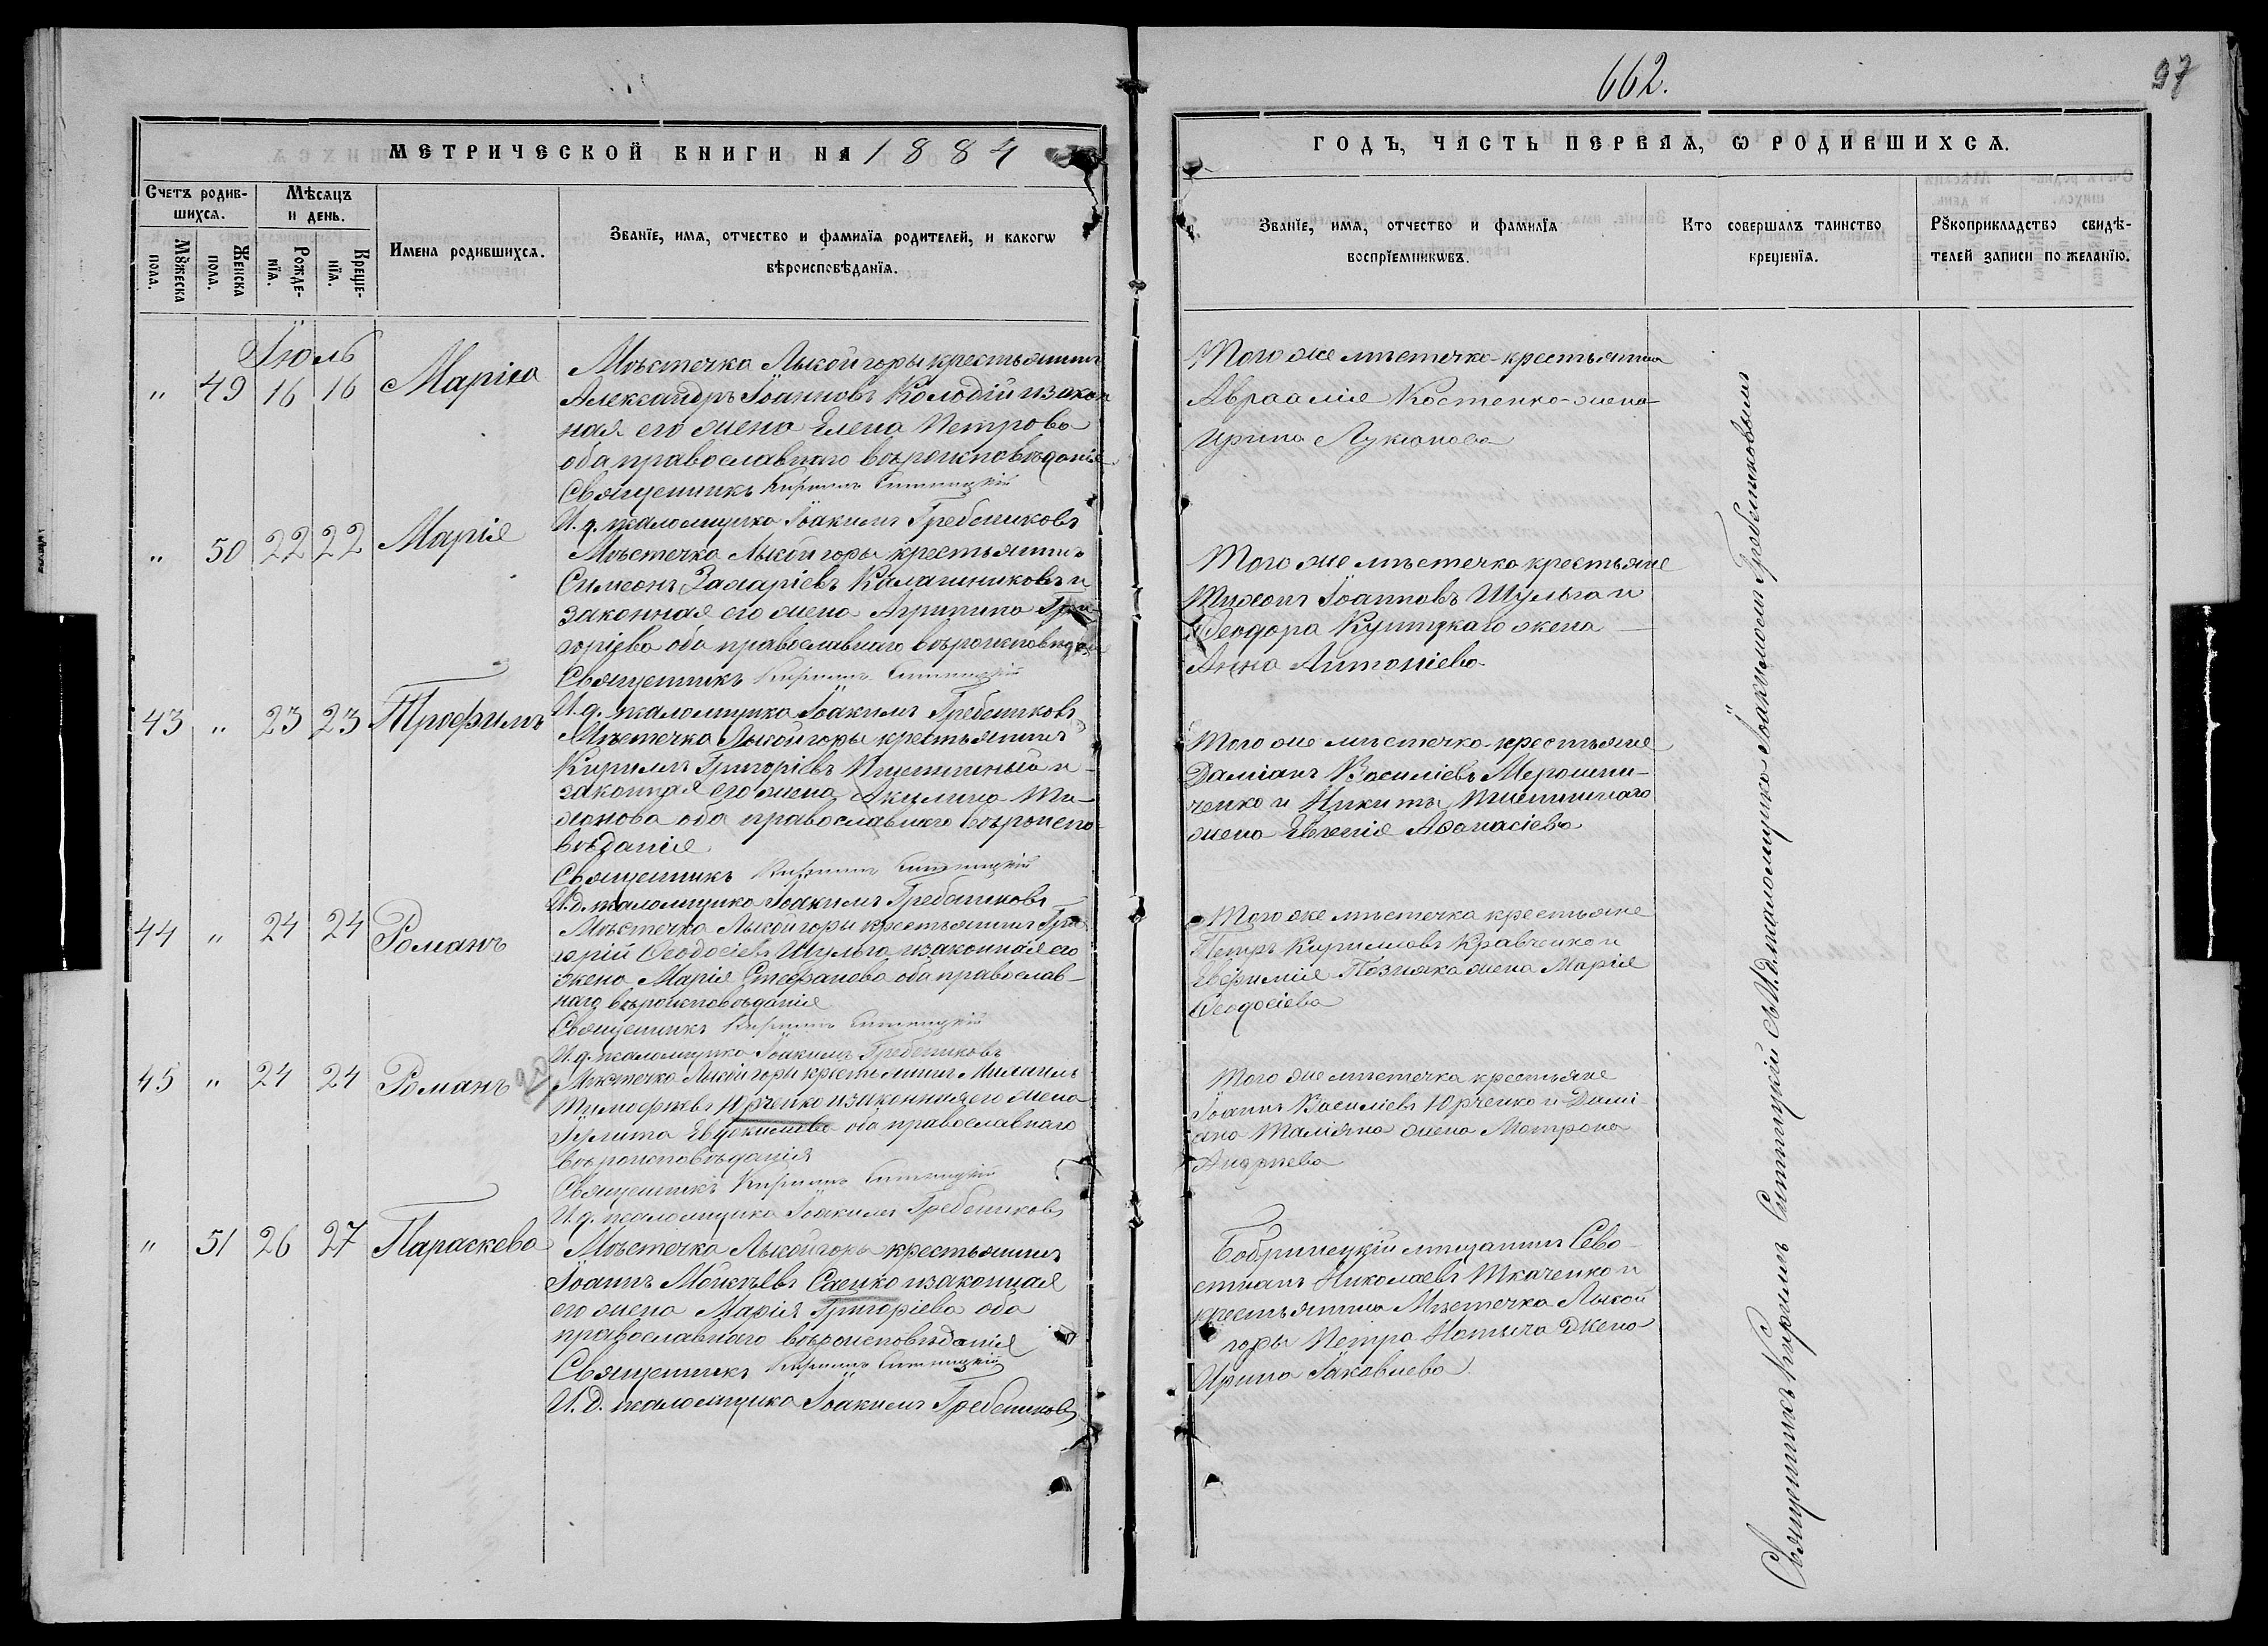 662.
97
МЕТРИЧЕСКОЙ КНИГИ НА 1884
ГОДЪ, ЧАСТЬ ПЕРВАЯ, Ѡ РОДИВШИХСѦ.
Счетъ родив-
шихсѧ.
Мѣсяцъ
и день.
Мꙋжеска
пола.
Женска
пола.
Рожде-
нїѧ.
Креще-
нїѧ.
Имена родившихсѧ.
Званїе, имѧ, отчество и фамилїѧ родителей, и какогѡ
вѣроисповѣданїѧ.
Званїе, имѧ, отчество и фамилїѧ
воспрїемникѡвъ.
Кто совершалъ таинство
крещенїѧ.
Рꙋкоприкладство свидѣ-
телей записи по желанїю.
Іюль
" 49 16 16 Маріѧ
Мѣстечка Лысойгоры крестьянинъ
Александръ Іоанновъ Колодій и закон
ная его жена Елена Петрова
оба православнаго вѣроисповѣданія
Священникъ Кириллъ Ситницкій
И. д. псаломщика Іоакимъ Гребениковъ
Того же мѣстечка крестьянина
Авраамія Костенко жена
Ирина Лукіанова
" 50 22 22 Марія
Мѣстечка Лысойгоры крестьянинъ
Симеонъ Захаріевъ Калашниковъ и
законная его жена Агрипина Гри-
горіева оба православнаго вѣроисповѣдан
Священникъ Кириллъ Ситницкій
И. д. псаломщика Іоакимъ Гребениковъ
Того же мѣстечка крестьяне
Тихонъ Іоанновъ Шульга и
Ѳеодора Куницкаго жена
Анна Антоніева
43 " 23 23 Трофимъ
Мѣстечка Лысойгоры крестьянинъ
Кириллъ Григоріевъ Пшеничный и
законная его жена Акулина Ти-
хонова оба православнаго вѣроиспо-
вѣданія
Священникъ Кириллъ Ситницкій
И. д. псаломщика Іоакимъ Гребениковъ
Того же мѣстечка крестьяне
Даміанъ Василіевъ Мерошни-
ченко и Никиты Пшеничнаго
жена Евгенія Аѳанасіева
44 " 24 24 Романъ
Мѣстечка Лысойгоры крестьянинъ Гри
горій Ѳеодосіевъ Шульга и законная его
жена Марія Стефанова оба православ-
наго вѣроисповѣданія
Священникъ Кириллъ Ситницкій
И. д. псаломщика Іоакимъ Гребениковъ
Того же мѣстечка крестьяне
Петръ Кирилловъ Кравченко и
Евфимія Позняка жена Марія
Ѳеодосіева
45 " 24 24 Романъ
Мѣстечка Лысойгоры крестьянинъ Михаилъ
Тимофѣевъ Юрченко и законная его жена
Евдокимова оба православнаго
вѣроисповѣданія
Священникъ Кириллъ Ситницкій
И. д. псаломщика Іоакимъ Гребениковъ
Того же мѣстечка крестьяне
Іоаннъ Василіевъ Юрченко и Дамі
ана Таліяна жена Матрона
Андреева
" 51 26 27 Параскева
Мѣстечка Лысойгоры крестьянинъ
Іоаннъ Моисѣевъ Саенко и законная
его жена Марія Григоріева оба
православнаго вѣроисповѣданія
Священникъ Кириллъ Ситницкій
И. д. псаломщика Іоакимъ Гребениковъ
Бобринецкій мѣщанинъ Сева-
стианъ Николаевъ Ткаченко и
крестьянина Мѣстечка Лысой
горы Петра жена
Ирина Іаковлева
Священникъ Кириллъ Ситницкій съ И.Д. псаломщика Іоакимомъ Гребениковымъ